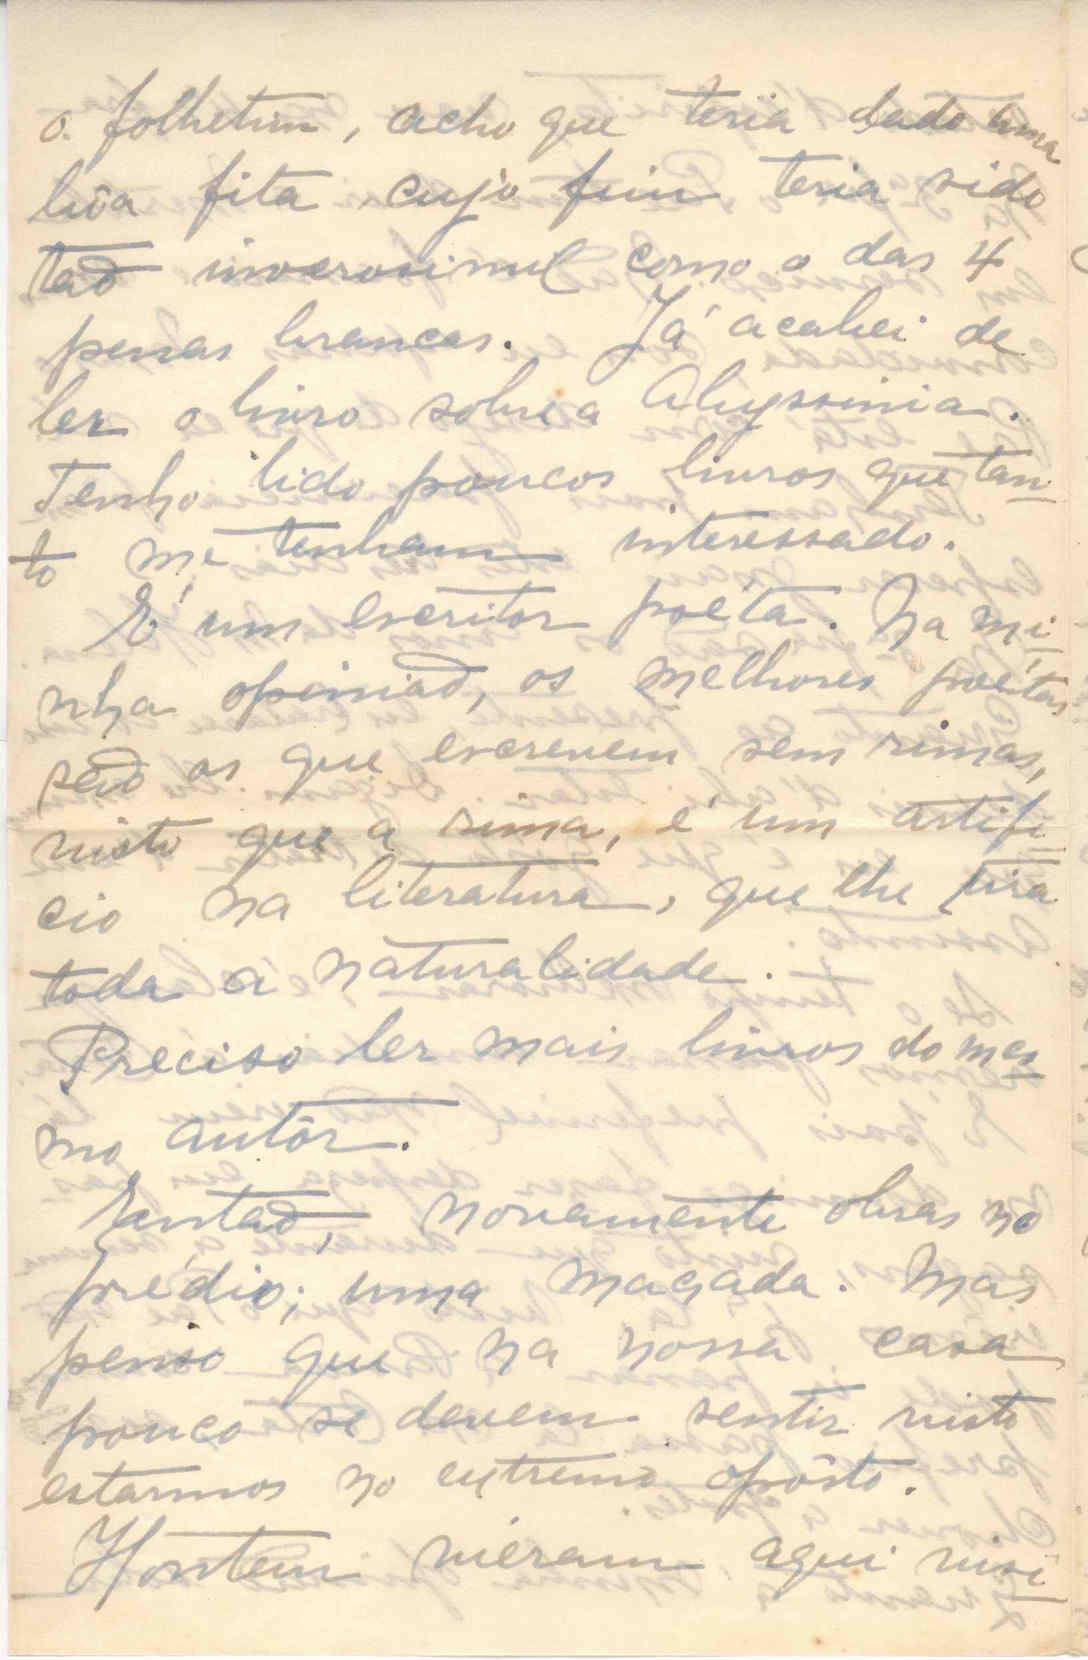 o folhetim, acho que teria dado uma
bôa fita cujo fim teria sido
tão inverosimil como o das 4
penas brancas. Já acabei de
ler o livro sobre a Abyssinia.
Tenho lido poucos livros que tan-
to me tenham interessado.
É um escritor poéta. Na mi-
nha opinião, os melhores poétas
são os que escrevem sem rimas,
visto que a rima, é um artifi-
cio na literatura, que lhe tira
toda a naturalidade.
Preciso ler mais livros do mes-
mo autôr.
Entaõ, novamente obras no
prédio; uma maçada. Mas
penso que na nossa casa
pouco se devem sentir visto
estarmos no extremo opôsto.
Hontem viéram aqui visi-